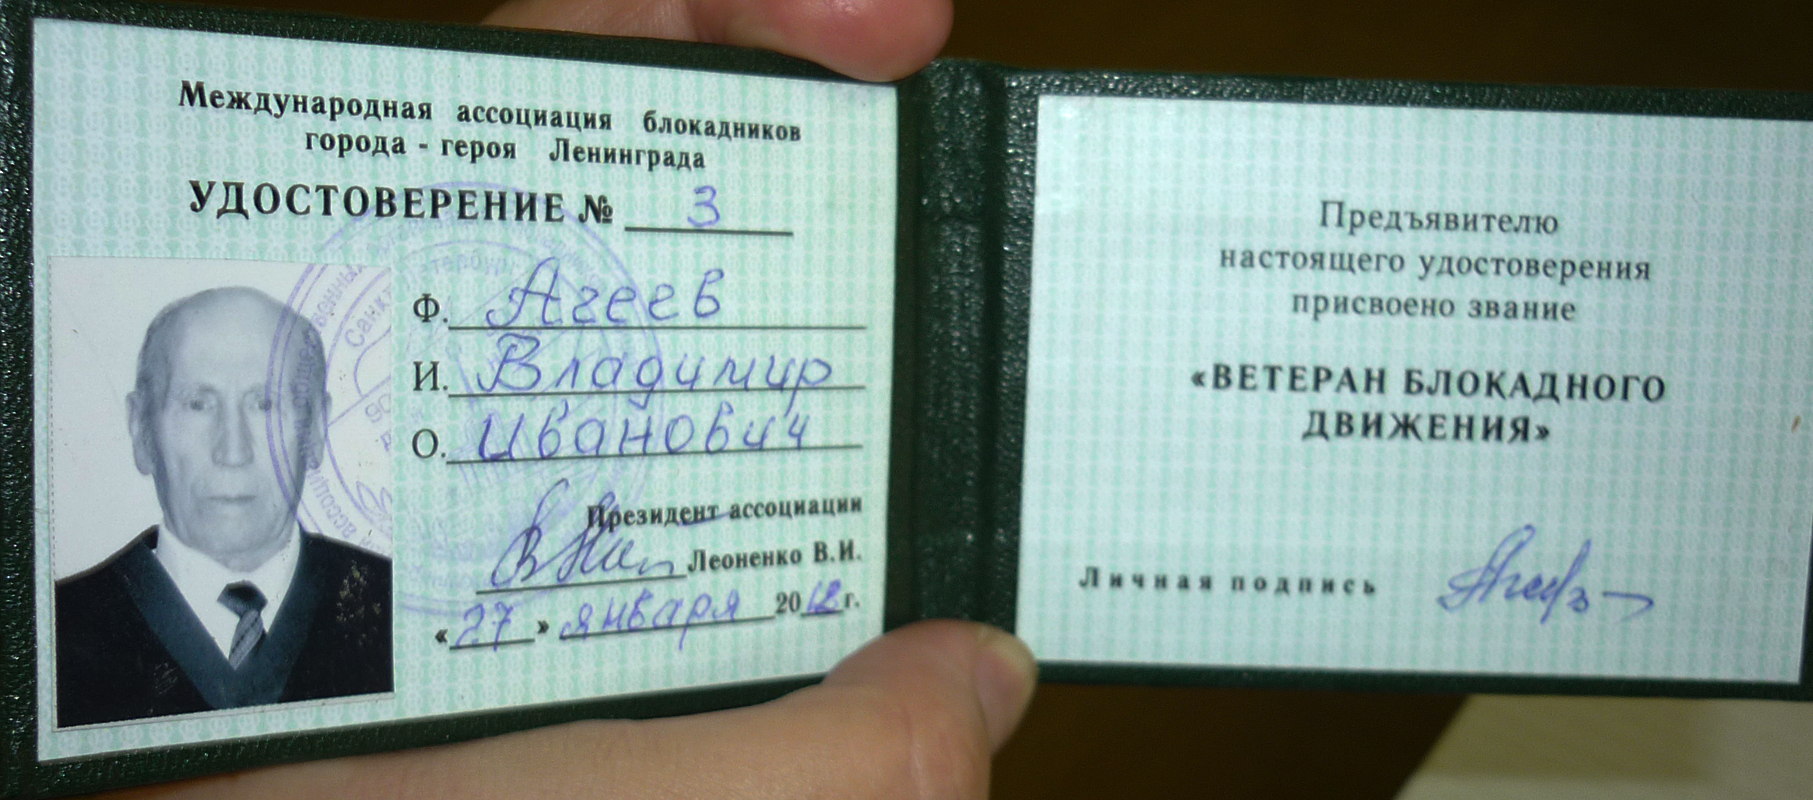 Международная ассоциация блокадников
города - героя Ленинграда
УДОСТОВЕРЕНИЕ № 3
Ф. Агеев
И. Владимир
О. Иванович
Президент ассоциации
Леоненко В.И.
«27» января 2012 г.
Санкт
Предъявителю
настоящего удостоверения
присвоено звание
«ВЕТЕРАН БЛОКАДНОГО
ДВИЖЕНИЯ»
Личная подпись